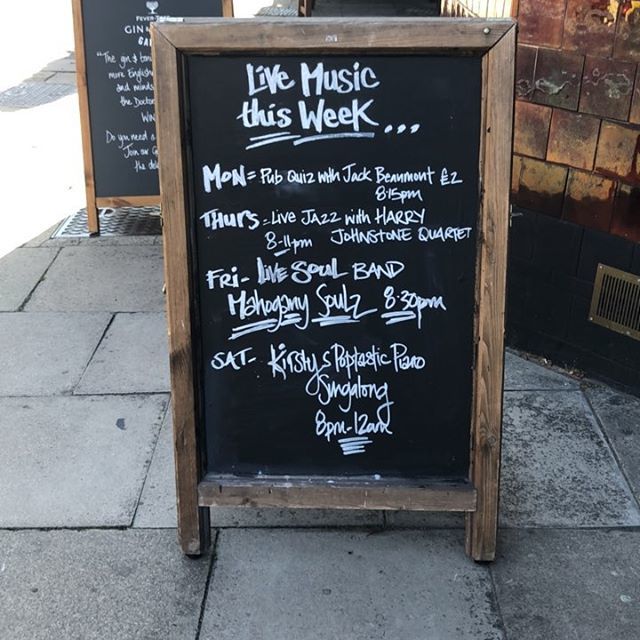 FEVER-TREE
GIN
"The gin & tonic
more English
and minds
the Doctor
Do you need a
Join our
the
Live Music
this Week...
MON = Pub Quiz with Jack Beaumont £2
8:15pm
THURS = Live JAZZ with HARRY
8-11pm JOHNSTONE QUARTET
FRI- LIVE SOUL BAND
Mahogany Soulz 8:30pm
SAT- Kirsty's Poptastic Piano
Singalong
8pm-12am